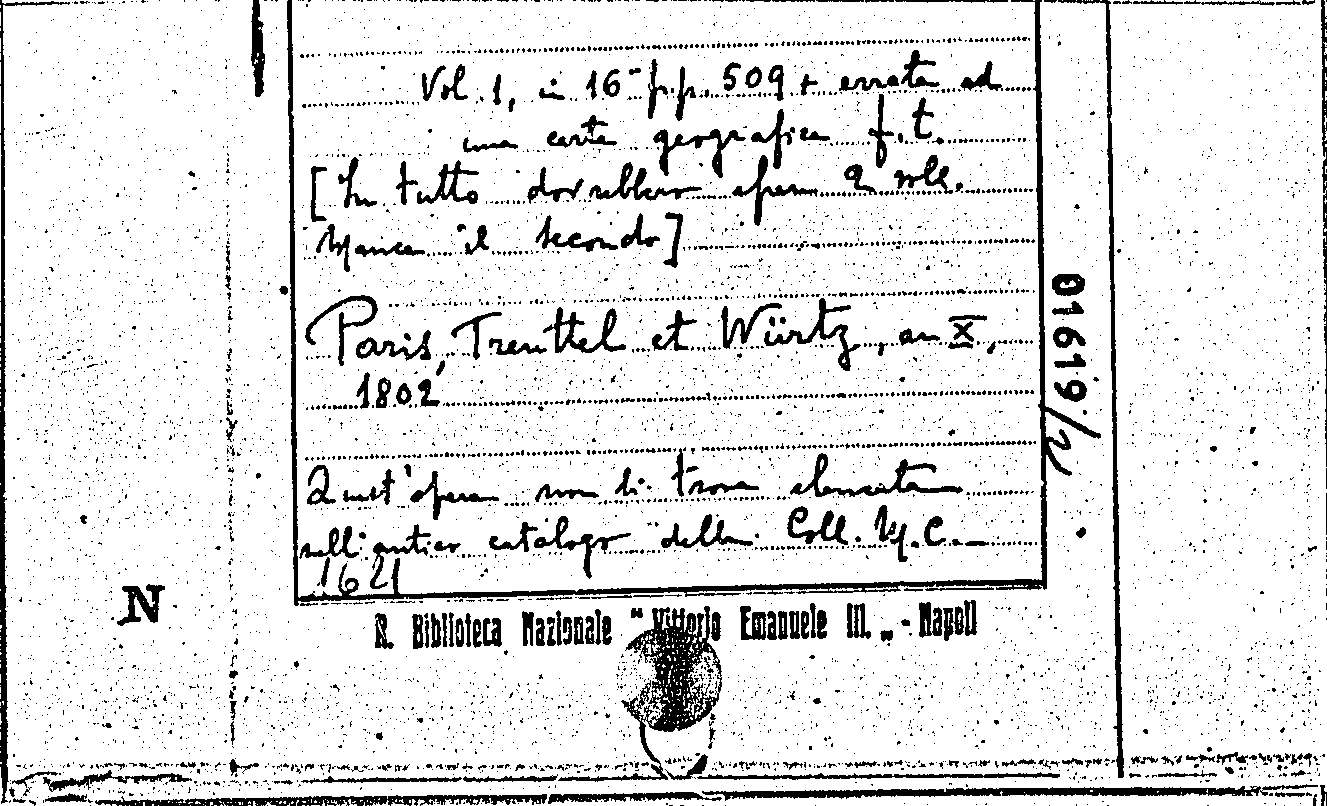 Vol. 1, in 16° pp. 509 + errata ad
una carta geografica f. t.
[In tutto dovrebbero essere 2 voll.
Manca il secondo]
Paris, Treuttel et Würtz, an X,
1802
Quest'opera non si trova elencata
nell'antico catalogo della Coll. M. C. —
1621
01619/2
N
R. Biblioteca Nazionale "Vittorio Emanuele III. „ - Napoli